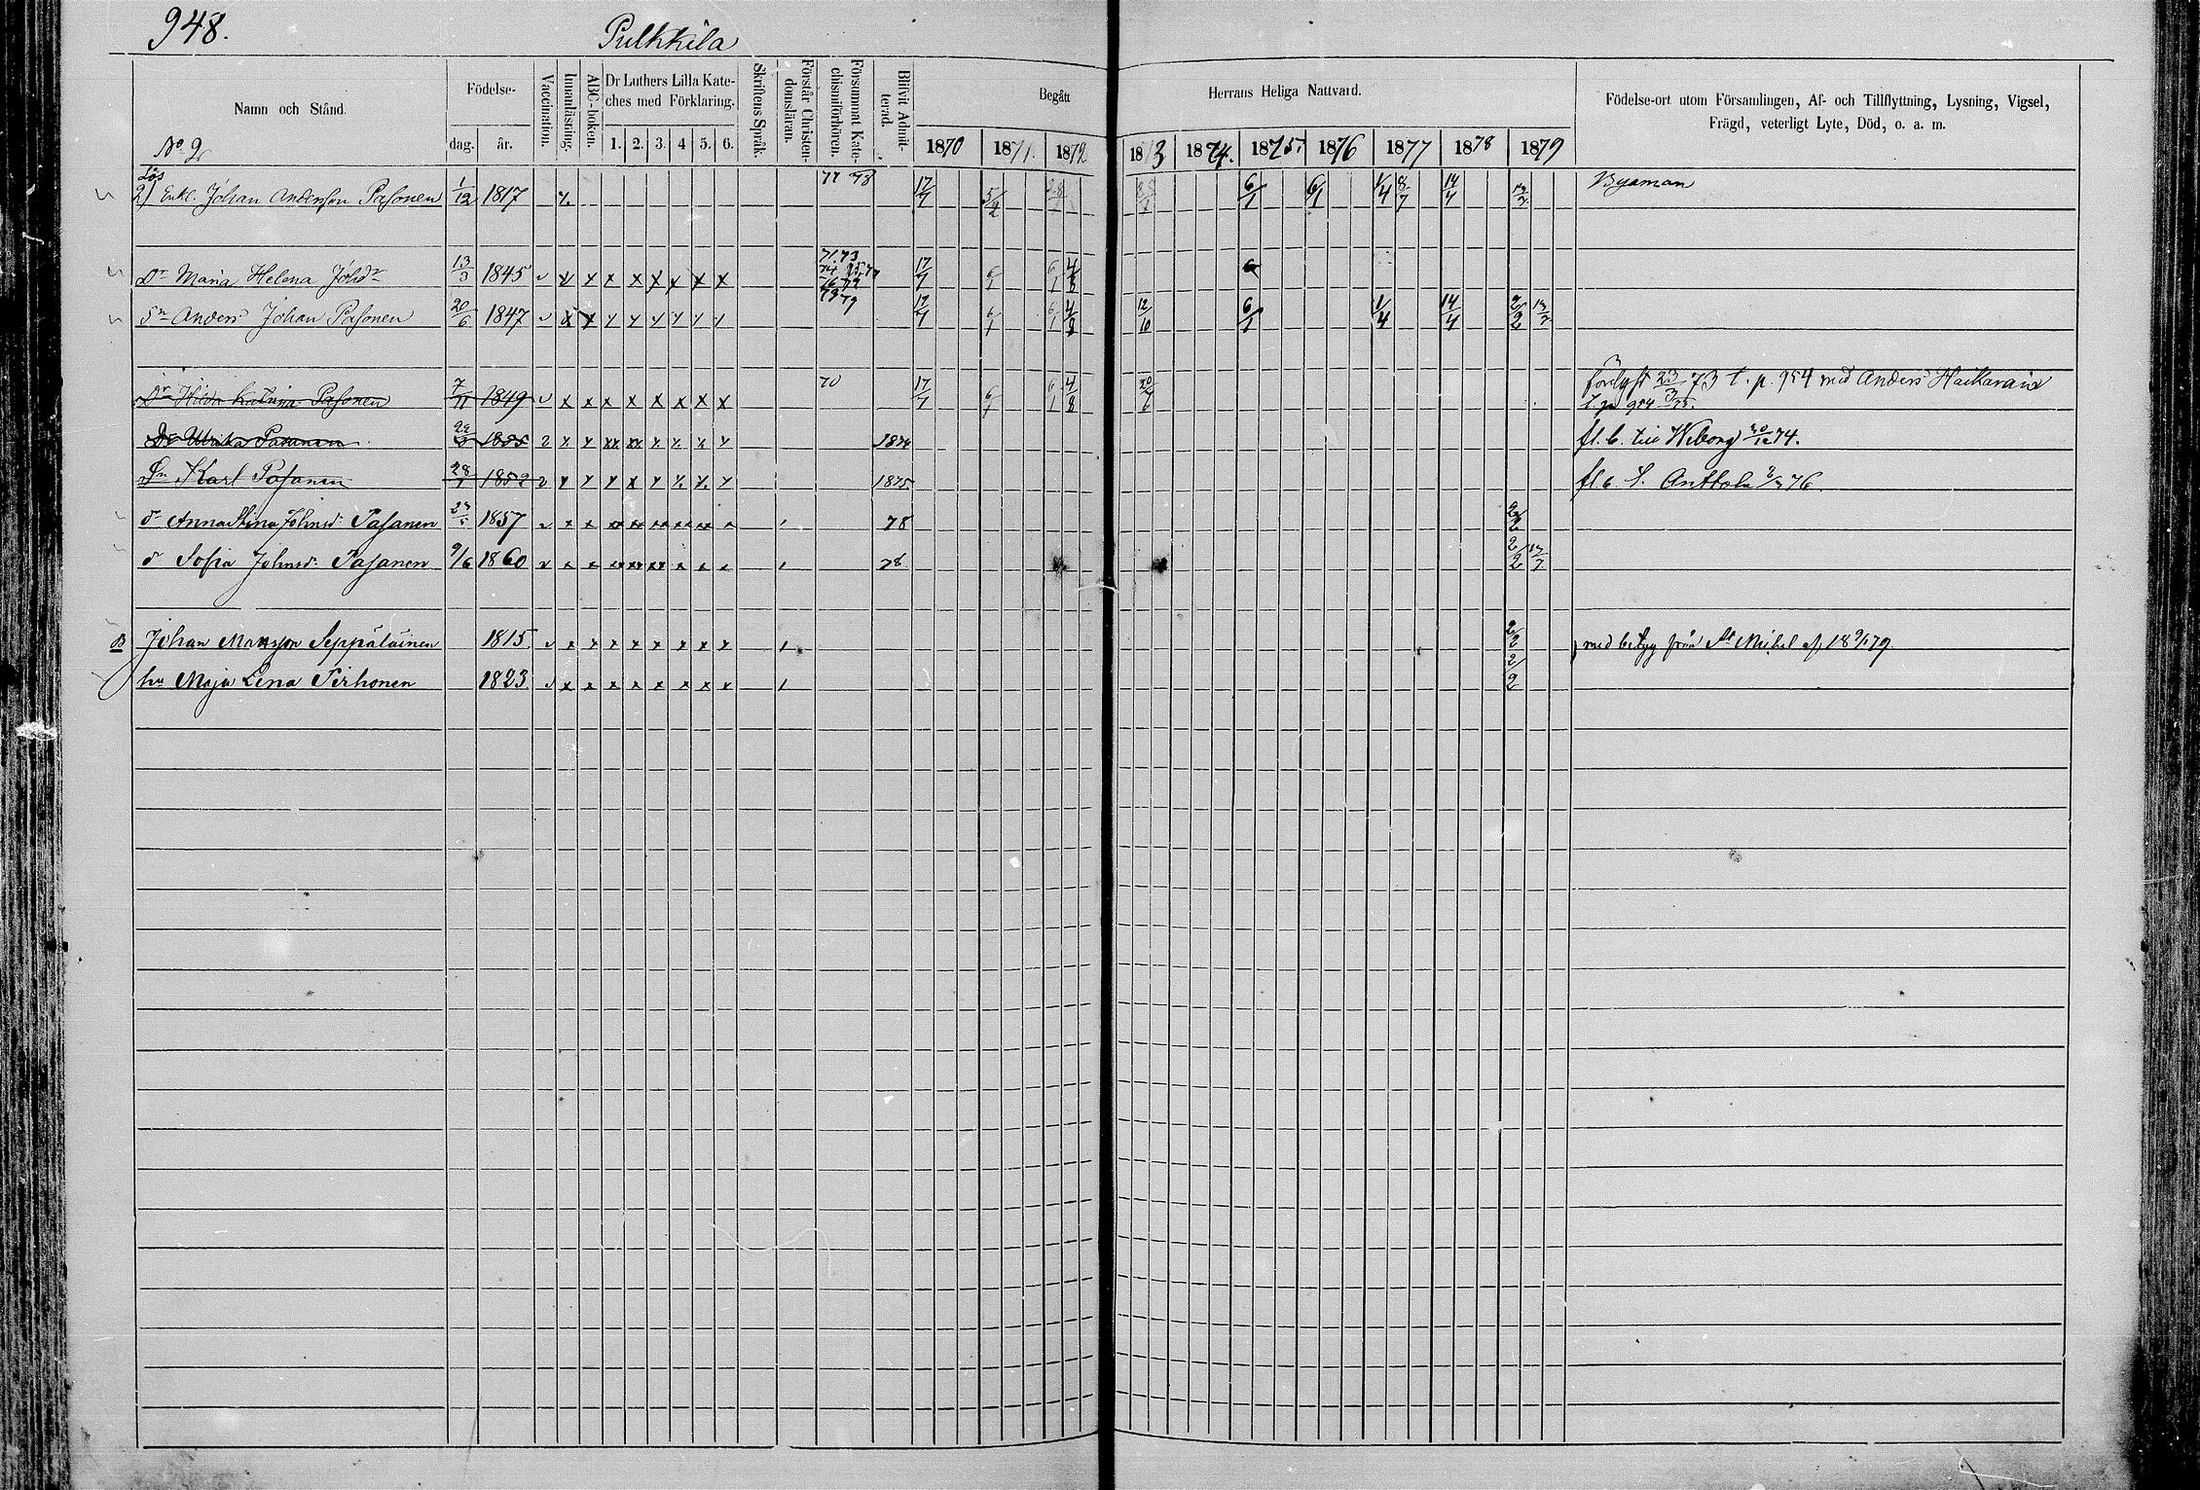 948.
Pulkkila
Namn och Stånd.
Födelse-
dag.
år.
Vaccination.
Innanläsning.
ABC-boken.
Dr Luthers Lilla Kate-
ches med Förklaring.
1. 2. 3. 4 5. 6.
Skriftens Språk.
Förstår Christen-
domsläran.
Försummat Kate-
chismiförhören.
Blifvit Admit-
terad.
Begått
Herrans Heliga Nattvard.
1870 1871. 1872 1873 1874. 1875. 1876 1877 1878 1879
Födelse-ort utom Församlingen, Af- och Tillflyttning, Lysning, Vigsel,
Frägd, veterligt Lyte, Död, o. a. m.
No 2
Lös
2) Enkl. Johan Andersson Pasonen 1/12 1817 77 78 17/7 5/2 6/1 6/1 1/4 8/7 14/4
Dr Maria Helena Johdr 13/3 1845 71. 73 17/7 6/1 6/1 4/8 6
Sn Anders Johan Pasonen 20/6 1847 78 79 17/7 6/1 6/1 4/8 12/10 6/1 1/4 14/4 2/2 13/7
Dr Hilda Katrina Pasonen 7/11 1849 70 17/7 6/1 6/1 4/8 20/6 73 t. p. 954 med Anders
t. p. 954
Dr Ulrika Pasanen 1855 1874 fl. b. till Wiborg 74.
Sn Karl Pasanen 28 1852 1875 fl. b. t. Anttola 76
dr Anna Stina Johnsd. Pasanen 1857 78 2/2
dr Sofia Johnsd. Pasanen 9/6 1860 78 2/2 13/7
B Johan Mansson Seppäläinen 1815 2/2 med betyg från St Mickel af 18 9/1 79
hu Maja Lena Pirhonen 1823 2/2